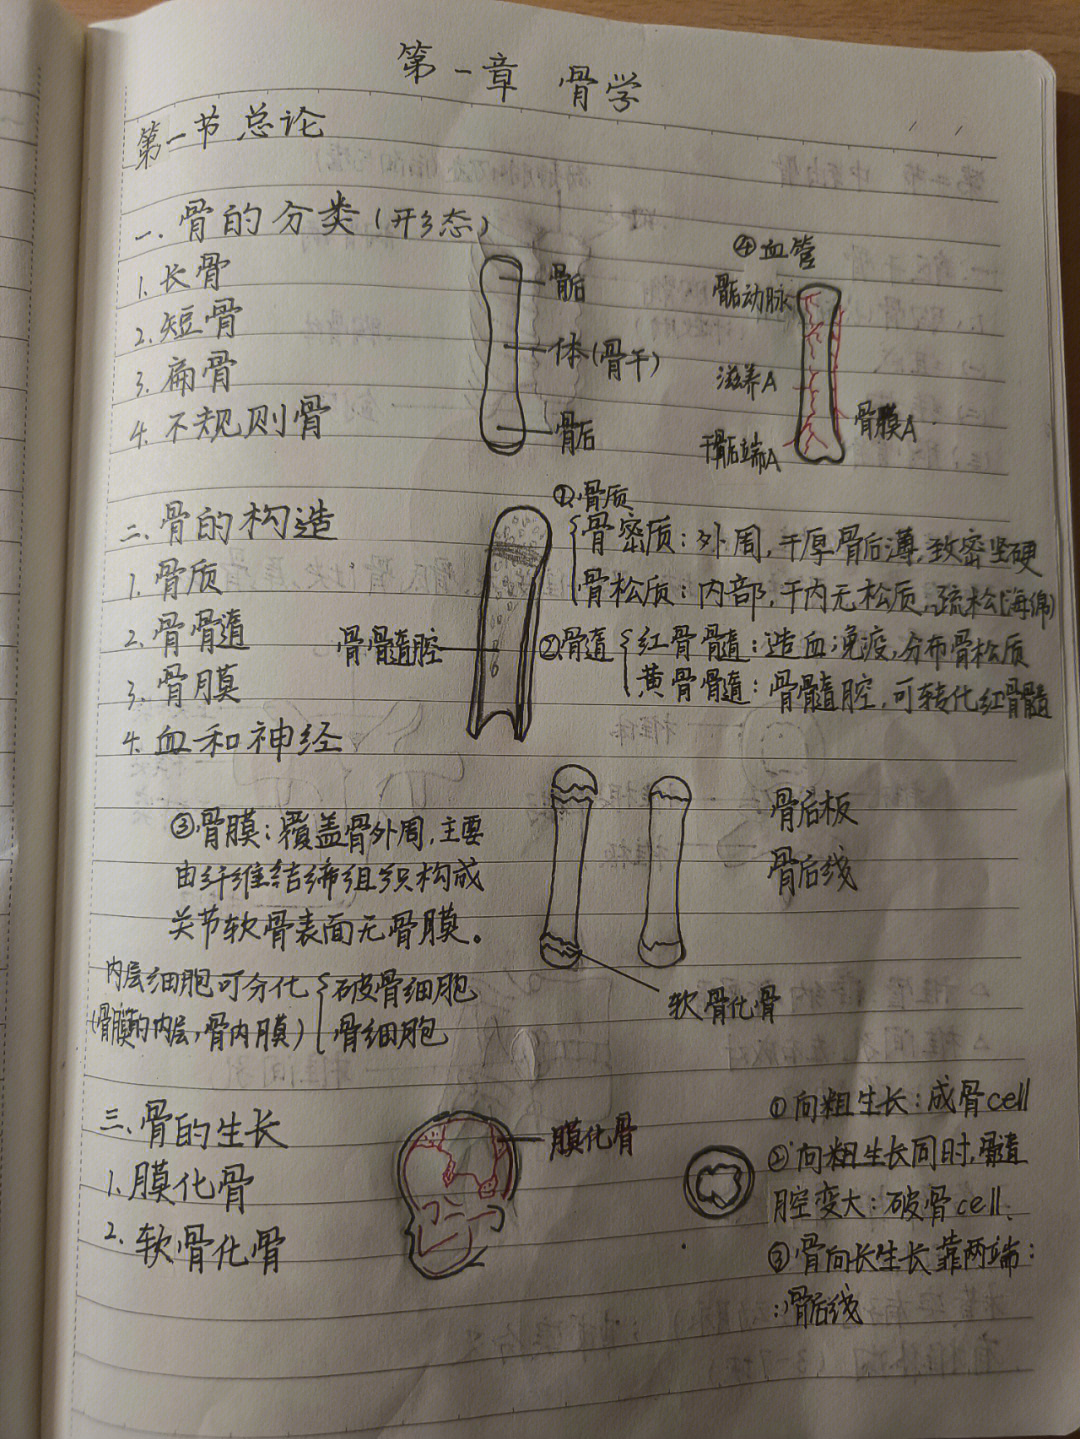 第一章 骨学
第一节 总论
一.骨的分类(形态)
1.长骨
2.短骨
3.扁骨
4.不规则骨
骨后
体(骨干)
骨后
④血管
骺动脉
滋养A
干骺端A
骨膜A
二.骨的构造
1.骨质
2.骨髓
3.骨膜
4.血和神经
骨髓腔
①骨质
骨密质:外周,干厚骨后薄,致密坚硬
骨松质:内部,干内无松质,疏松(海绵)
②骨髓
红骨髓:造血;免疫,分布骨松质
黄骨髓:骨髓腔,可转化红骨髓
③骨膜:覆盖骨外周,主要
由纤维结缔组织构成
关节软骨表面无骨膜。
内层细胞可分化
(骨膜的内层,骨内膜)
破骨细胞
骨细胞
骨后板
骨后线
软骨化骨
三.骨的生长
1.膜化骨
2.软骨化骨
膜化骨
①向粗生长:成骨cell
②向粗生长同时,骨髓
腔变大:破骨cell、
③骨向长生长靠两端:
:骨后线